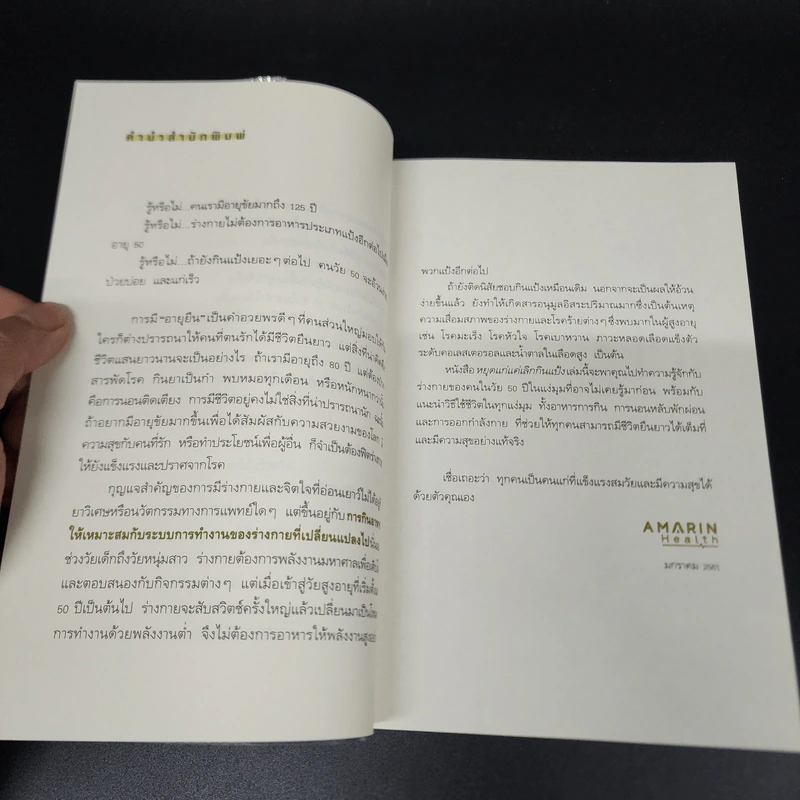 คำนำสำนักพิมพ์
รู้หรือไม่...คนเรามีอายุขัยมากถึง 125 ปี
รู้หรือไม่...ร่างกายไม่ต้องการอาหารประเภทแป้งอีกต่อไป
อายุ 50
รู้หรือไม่...ถ้ายังกินแป้งเยอะๆ ต่อไป คนวัย 50 จะอ้วน
ป่วยบ่อย และแก่เร็ว
การมี "อายุยืน" เป็นคำอวยพรดีๆ ที่คนส่วนใหญ่มอบให้
ใครก็ต่างปรารถนาให้คนที่ตนรักได้มีชีวิตยืนยาว แต่สิ่งที่
ชีวิตแสนยาวนานจะเป็นอย่างไร ถ้าเรามีอายุถึง 80 ปี แต่ต้อง
สารพัดโรค กินยาเป็นกำ พบหมอทุกเดือน หรือหนักหนากว่านั้น
คือการนอนติดเตียง การมีชีวิตอยู่คงไม่ใช่สิ่งที่น่าปรารถนานัก
ถ้าอยากมีอายุมากขึ้นเพื่อได้สัมผัสกับความสวยงามของโลก
ความสุขกับคนที่รัก หรือทำประโยชน์เพื่อผู้อื่น ก็จำเป็นต้องฟิตร่างกาย
ให้ยังแข็งแรงและปราศจากโรค
กุญแจสำคัญของการมีร่างกายและจิตใจที่อ่อนเยาว์ไม่ได้อยู่
ยาวิเศษหรือนวัตกรรมทางการแพทย์ใดๆ แต่ขึ้นอยู่กับการกินอาหาร
ให้เหมาะสมกับระบบการทำงานของร่างกายที่เปลี่ยนแปลงไป
ช่วงวัยเด็กถึงวัยหนุ่มสาว ร่างกายต้องการพลังงานมหาศาลเพื่อเติบโต
และตอบสนองกับกิจกรรมต่างๆ แต่เมื่อเข้าสู่วัยสูงอายุที่เริ่มตั้งแต่
50 ปีเป็นต้นไป ร่างกายจะสับสวิตช์ครั้งใหญ่แล้วเปลี่ยนมาเป็น
การทำงานด้วยพลังงานต่ำ จึงไม่ต้องการอาหารให้พลังงานสูง
พวกแป้งอีกต่อไป
ถ้ายังติดนิสัยชอบกินแป้งเหมือนเดิม นอกจากจะเป็นผลให้อ้วน
ง่ายขึ้นแล้ว ยังทำให้เกิดสารอนุมูลอิสระปริมาณมากซึ่งเป็นต้นเหตุ
ความเสื่อมสภาพของร่างกายและโรคร้ายต่างๆ ซึ่งพบมากในผู้สูงอายุ
เช่น โรคมะเร็ง โรคหัวใจ โรคเบาหวาน ภาวะหลอดเลือดแข็งตัว
ระดับคอเลสเตอรอลและน้ำตาลในเลือดสูง เป็นต้น
หนังสือ หยุดแก่แค่เลิกกินแป้ง เล่มนี้จะพาคุณไปทำความรู้จักกับ
ร่างกายของคนในวัย 50 ปีในแง่มุมที่อาจไม่เคยรู้มาก่อน พร้อมกับ
แนะนำวิธีใช้ชีวิตในทุกแง่มุม ทั้งอาหารการกิน การนอนหลับพักผ่อน
และการออกกำลังกาย ที่ช่วยให้ทุกคนสามารถมีชีวิตยืนยาวได้เต็มที่
และมีความสุขอย่างแท้จริง
เชื่อเถอะว่า ทุกคนเป็นคนแก่ที่แข็งแรงสมวัยและมีความสุขได้
ด้วยตัวคุณเอง
AMARIN
Health
มกราคม 2561